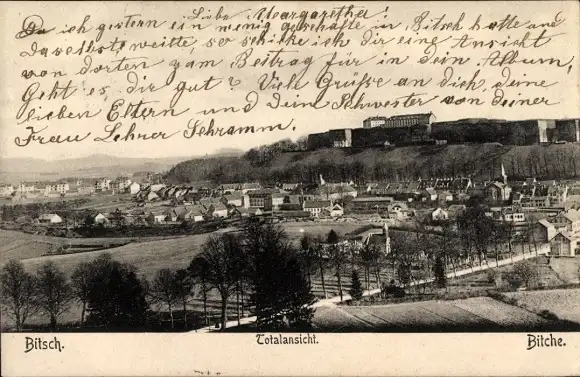 Liebe Margaretha!
Da ich gestern ein wenig geschäfte in Bitsch hatte und
daselbst weilte, so schicke ich dir eine Ansicht
von dorten zum Beitrag für in dein Album,
Geht es dir gut? Viele Grüße an dich, deine
lieben Eltern und deine Schwester von deiner
Frau Lehrer Schramm.
Bitsch. Totalansicht. Bitche.